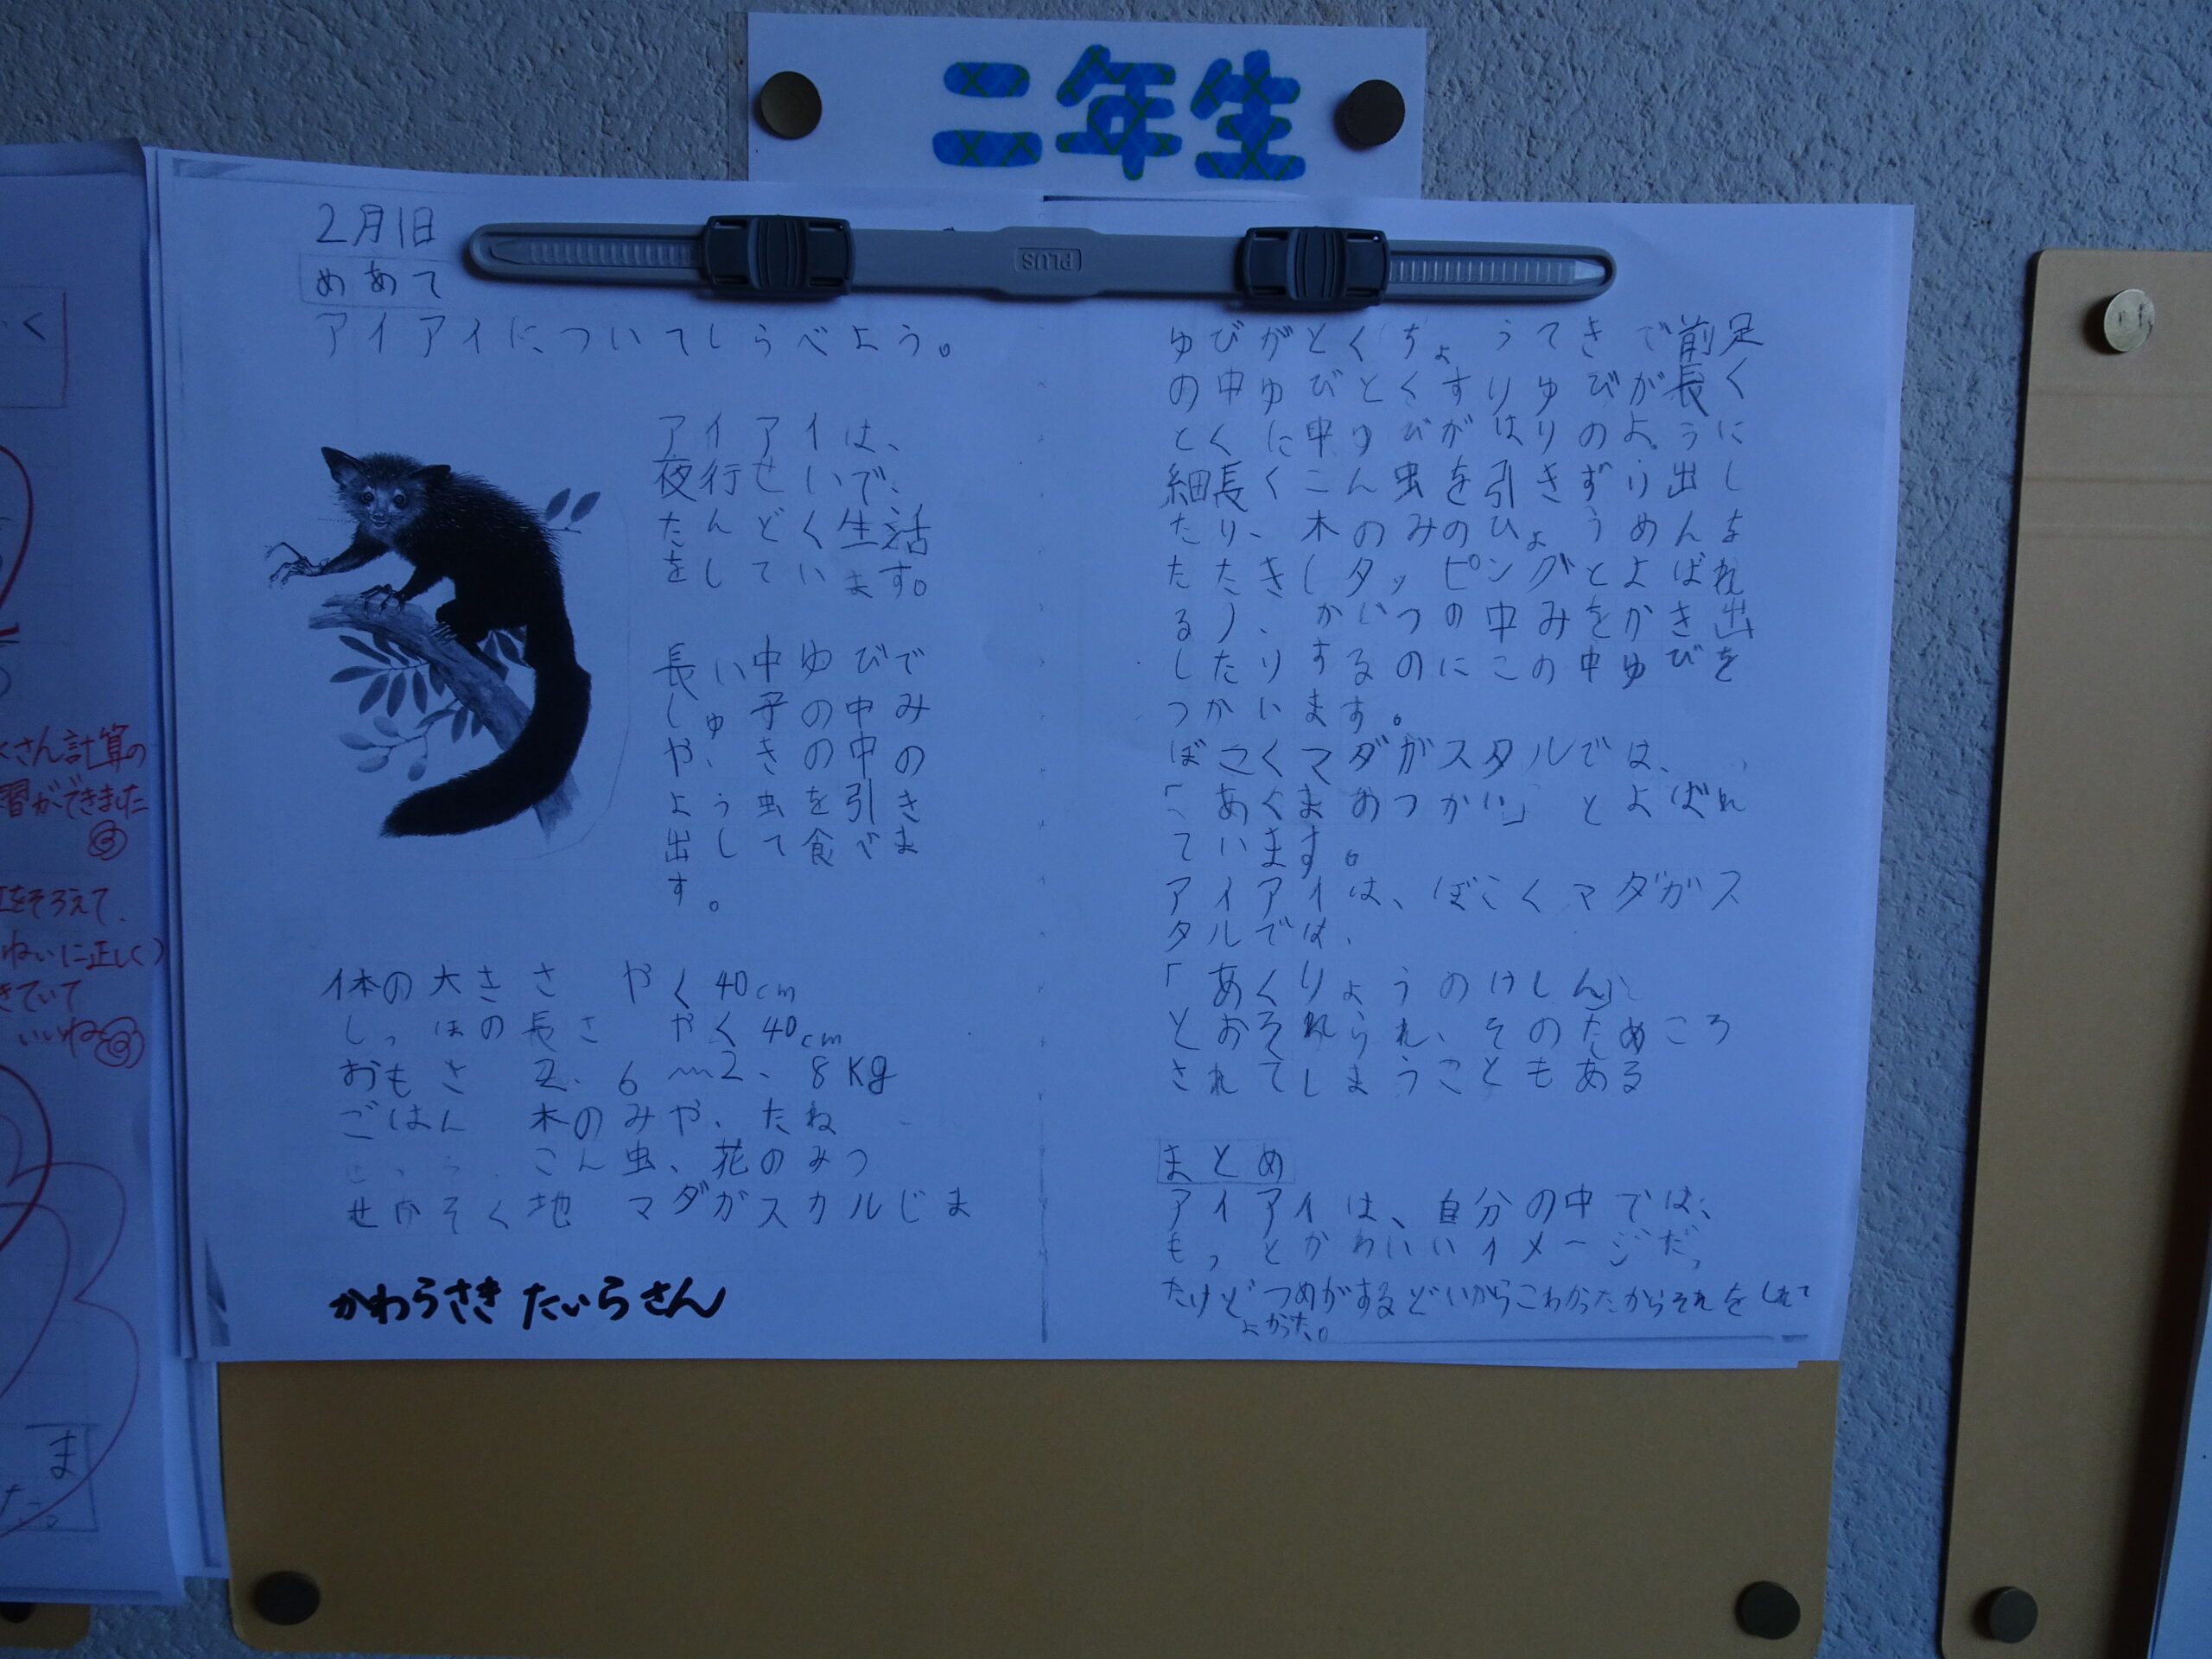 二年生
PLUS
2月1日
めあて
アイアイについてしらべよう。
アイアイは、
夜行せいで、
たんどく生活
をしています。
長い中ゆびで
しゅ子の中み
や、きの中の
よう虫を引き
出して食べま
す。
体の大きさ やく40cm
しっぽの長さ やく40cm
おもさ 2.6〜2.8Kg
ごはん 木のみや、たね
こん虫、花のみつ
せかそく地 マダガスカルじま
かわらさき たいらさん
ゆびがとくちょうてきで前足
の中ゆびとくすりゆびが長く
とくに中ゆびがはりのように
細長くこん虫を引きずり出し
たり、木のみのひょうめんを
たたき(タッピングとよばれ
る)、かじつの中みをかき出
したりするのにこの中ゆびを
つかいます。
ぼこくマダガスタルでは、
「あくまのつかい」とよばれ
ています。
アイアイは、ぼこくマダガス
タルでは、
「あくりょうのけしん」
とおそれられ、そのためころ
されてしまうこともある
まとめ
アイアイは、自分の中では、
もっとかわいいイメージだっ
たけどつめがするどいからこわかったからそれをしれて
よかった。
くさん計算の
習ができました
をそろえて、
ねいに正しく
きていて
いいね
く
ま
た。